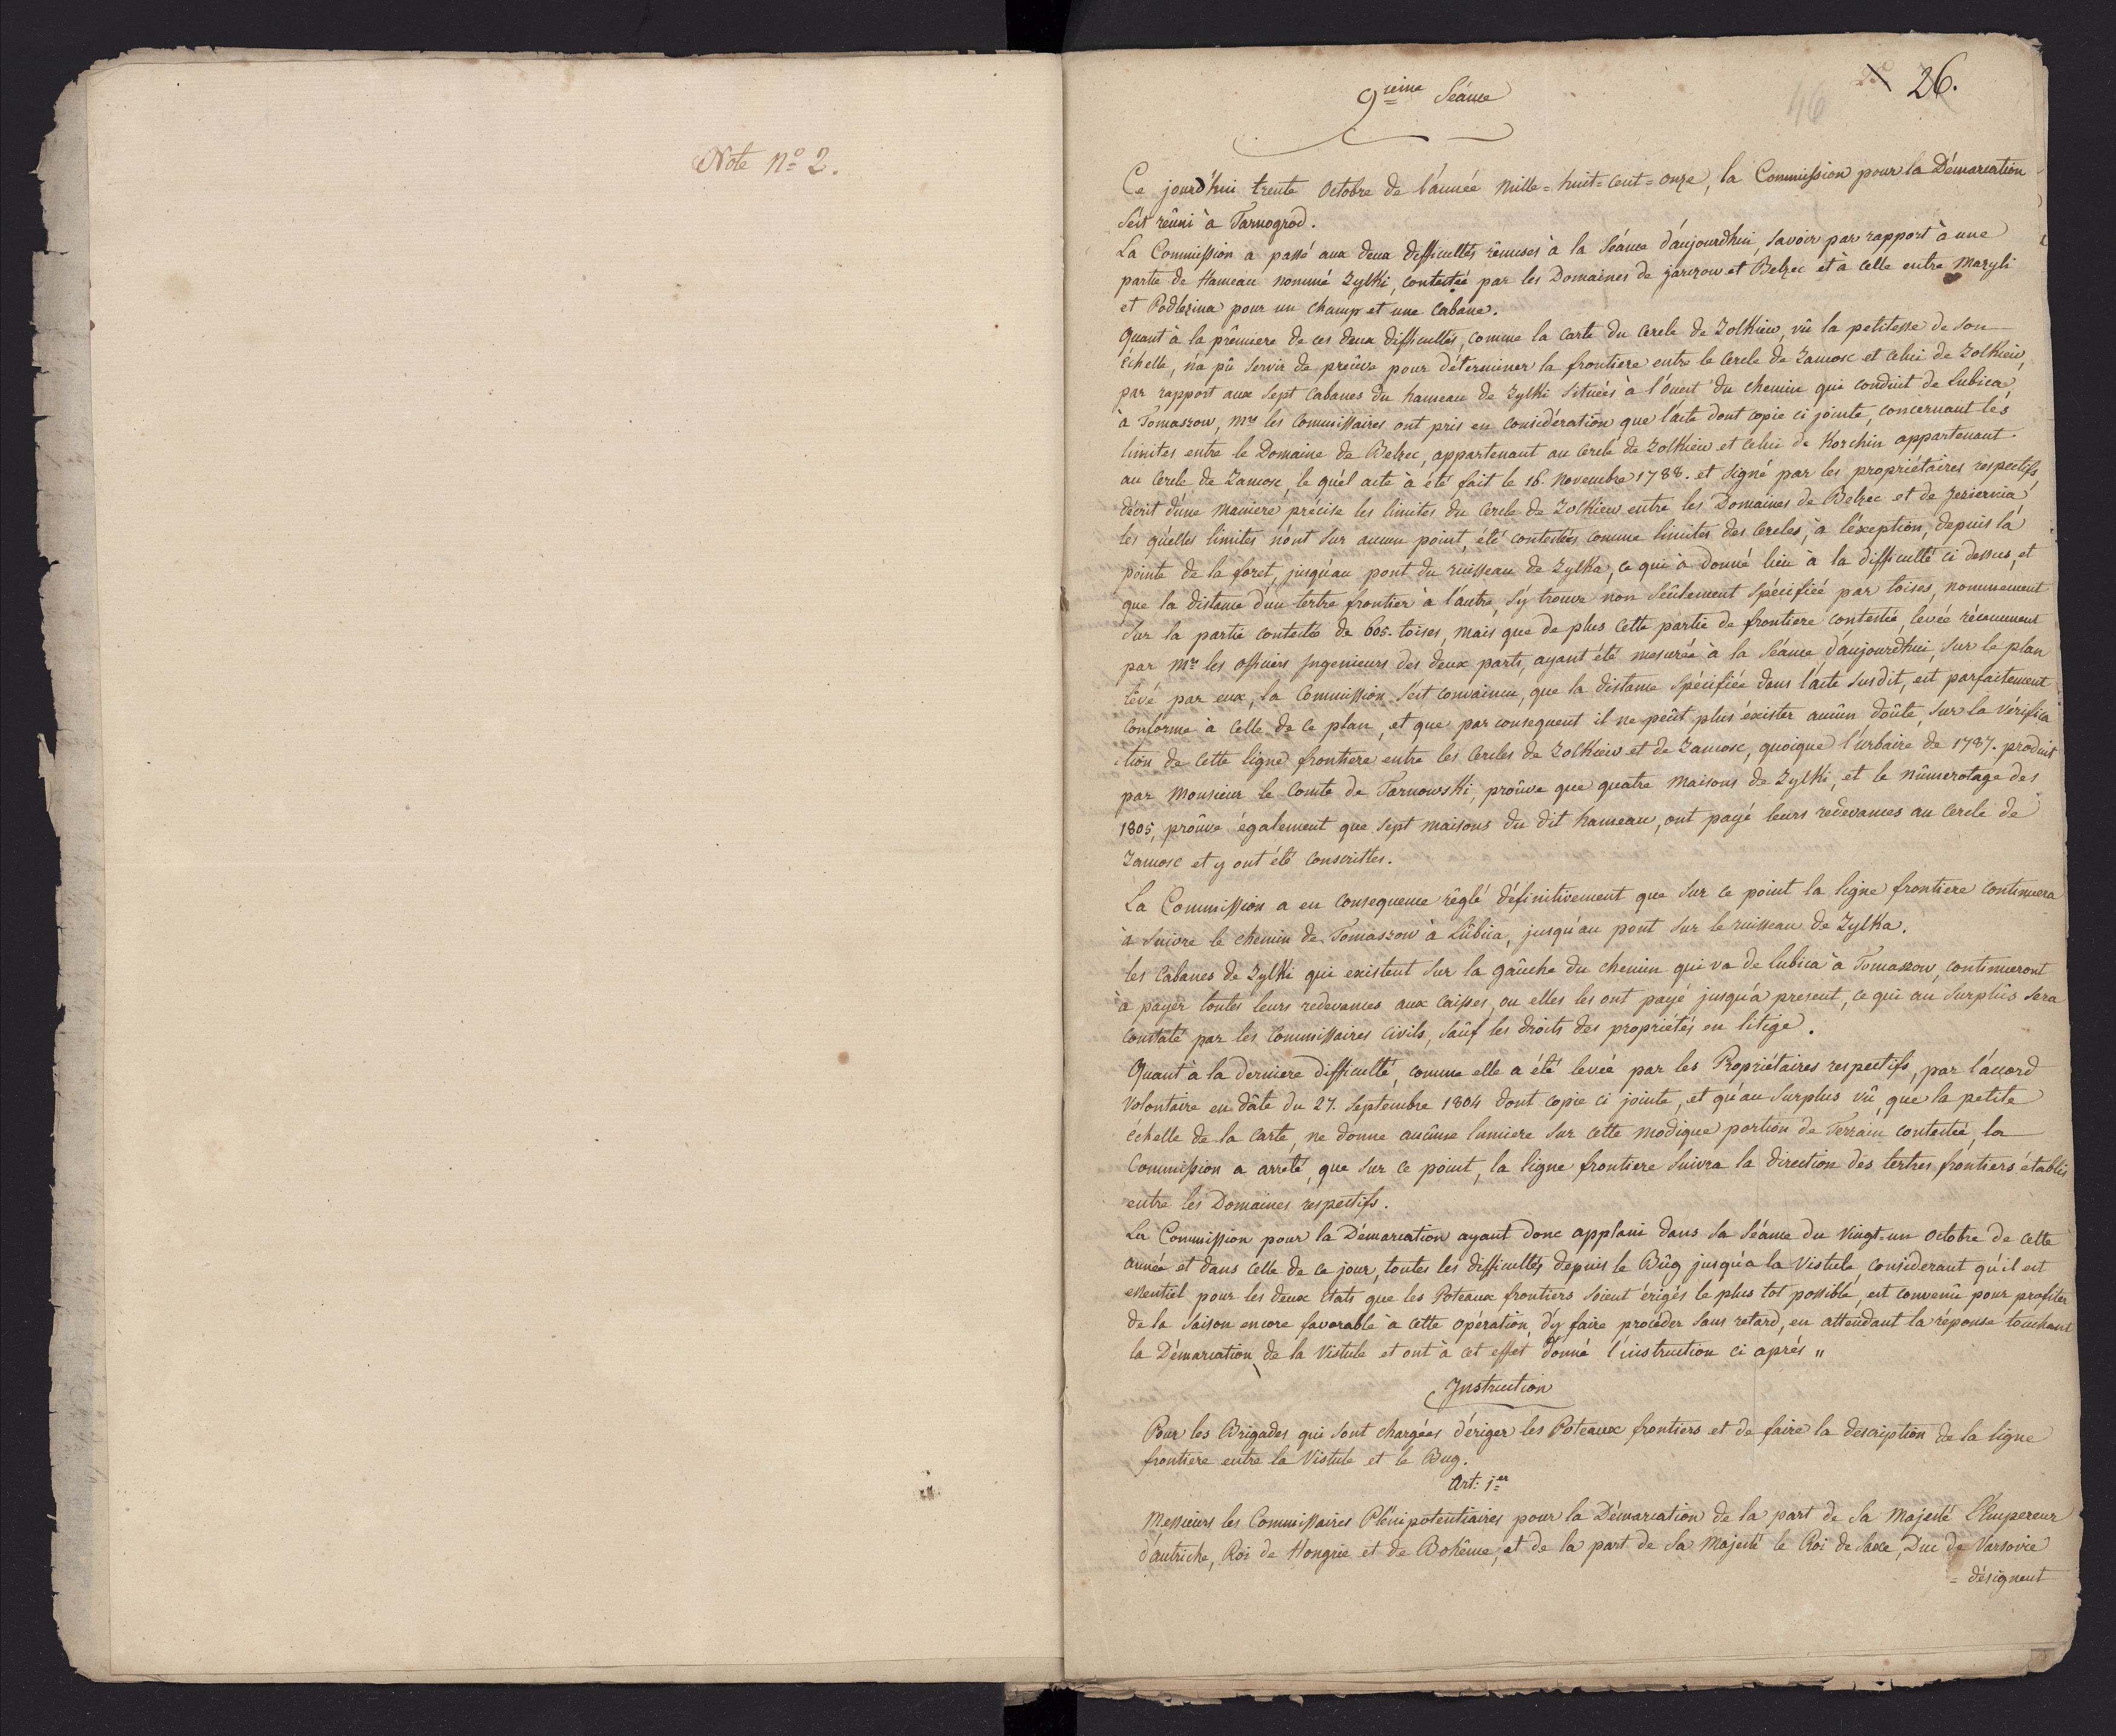 Note N° 2.
26.
46
9ieme Séance
Ce jourd'hui trente Octobre de l'année mille-huit-cent-onze, la Commission pour la Démarcation
s'est réuni à Tarnogrod.
La Commission a passé aux deux difficultés rémises à la Séance d'aujourdhui, savoir par rapport à une
partie de Hameau nommé Zylki, contestée par les Domaines de Jarczow et Belzec et à celle entre Mazyli
et Podlezina pour un champ et une Cabane.
Quant à la prémiere de ces deux difficultés, comme la carte du Cercle de Zolkiew, vû la petitesse de son
échelle, n'a pû servir de preûve pour déterminer la frontiere entre le Cercle de Zamosc et celui de Zolkiew,
par rapport aux Sept Cabanes du hameau de Zylki situées à l'Ouest du chemin qui conduit de Lubica
à Tomaszow, Mrs les Commissaires ont pris en considération que l'acte dont copie ci jointe, concernant les
limites entre le Domaine de Belzec, appartenant au Cercle de Zolkiew et celui de Korchin appartenant
au Cercle de Zamosc, le quél acte à été fait le 16. Novembre 1788. et signé par les propriétaires respectifs,
décrit d'une maniere précise les limites du Cercle de Zolkiew entre les Domaines de Belzec et de Jeziernia
les quélles limites n'ont sur aucun point, été contestées comme limites des Cercles, à l'éxception, depuis la
pointe de la foret, jusqu'au pont du ruisseau de Zylka, ce qui à donné lieu à la difficulté ci dessus, et
que la distance d'un tertre frontier à l'autre, s'y trouve non seûlement spécifiée par toises, nommement
sur la partie contestée de 605. toises, mais que de plus cette partie de frontiere contestée, levée récemment
par Mrs les officiers Ingenieurs des deux parts, ayant été mesurée à la Séance d'aujourdhui, sur le plan
levé par eux, la Commission s'est convaincu, que la distance spécifiée dans l'acte susdit, est parfaitement
conforme à celle de ce plan, et que par consequent il ne peût plus éxister aucûn doûte, sur la vérifica
tion de cette ligne frontiere entre les Cercles de Zolkiew et de Zamosc, quoique l'urbaire de 1787. produit
par Monsieur le Comte de Tarnowski, proûve que quatre Maisons de Zylki, et le nûmerotage des
1805, proûve également que sept maisons du dit hameau, ont payé leurs redevances au Cercle de
Zamosc et y ont été conscrittes.
La Commission a en consequence réglé définitivement que sur ce point la ligne frontiere continuera
à suivre le chemin de Tomaszow à Lûbica, jusqu'au pont sur le ruisseau de Zylka.
les Cabanes de Zylki qui existent sur la gaûche du chemin qui va de Lubica à Tomaszow, continueront
à payer toutes leurs redevances aux caisses, ou elles les ont payé jusqu'à present, ce qui au surplûs sera
constaté par les Commissaires civils, saûf les droits des propriétés en litige.
Quant à la derniere difficulté, comme elle a été levée par les Propriétaires respectifs, par l'accord
volontaire en dâte du 27. Septembre 1804 dont copie ci jointe, et qu'au surplus vû, que la petite
échelle de la carte, ne donne aucûne lumiere sur cette modique portion de Terrain contestée, la
Commission a arreté, que sur ce point, la ligne frontiere suivra la direction des tertres frontiers établis
entre les Domaines respectifs.
La Commission pour la Démarcation ayant donc applani dans sa Séance du vingt-un Octobre de cette
année et dans celle de ce jour, toutes les difficultés depuis le Bûg jusqu'a la Vistule, considerant qu'il est
essentiel pour les deux états que les Poteaux frontiers soient érigés le plus tôt possible, est convenûe pour profiter
de la saison encore favorable à cette opération, d'y faire procéder sans retard, en attendant la réponse touchant
la Démarcation de la Vistule et ont à cet effet donné l'instruction ci aprés "
Instruction
Pour les Brigades qui sont chargées d'ériger les Poteaux frontiers et de faire la description de la ligne
frontiere entre la Vistule et le Bug.
Art: 1er
Messieurs les Commissaires Plénipotentiaires pour la Démarcation de la part de Sa Majesté L'Empereur
d'autriche, Roi de Hongrie et de Bohême, et de la part de Sa Majesté le Roi de Saxe, Duc de Varsovie
= désignent